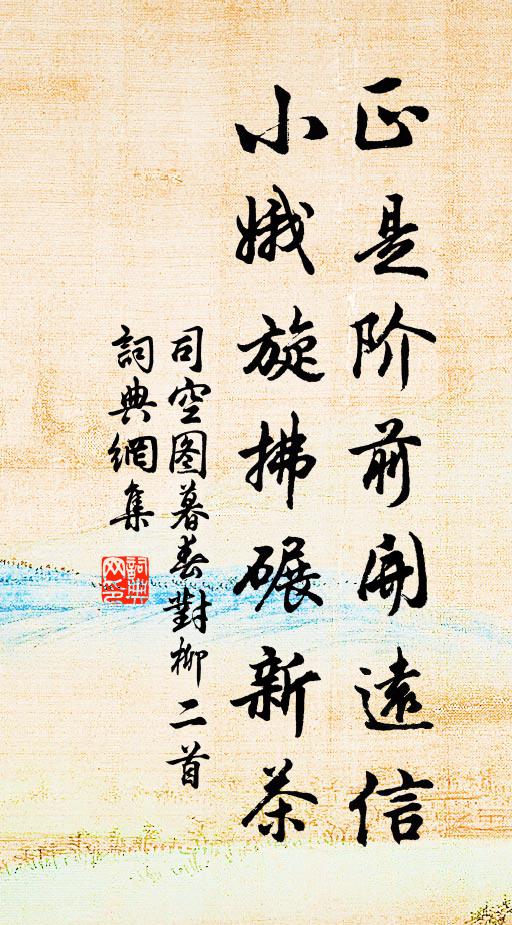 正是阶前開遠信
小娥旋拂碾新茶
司空图暮春對柳二首
詞典網集
詞典
网